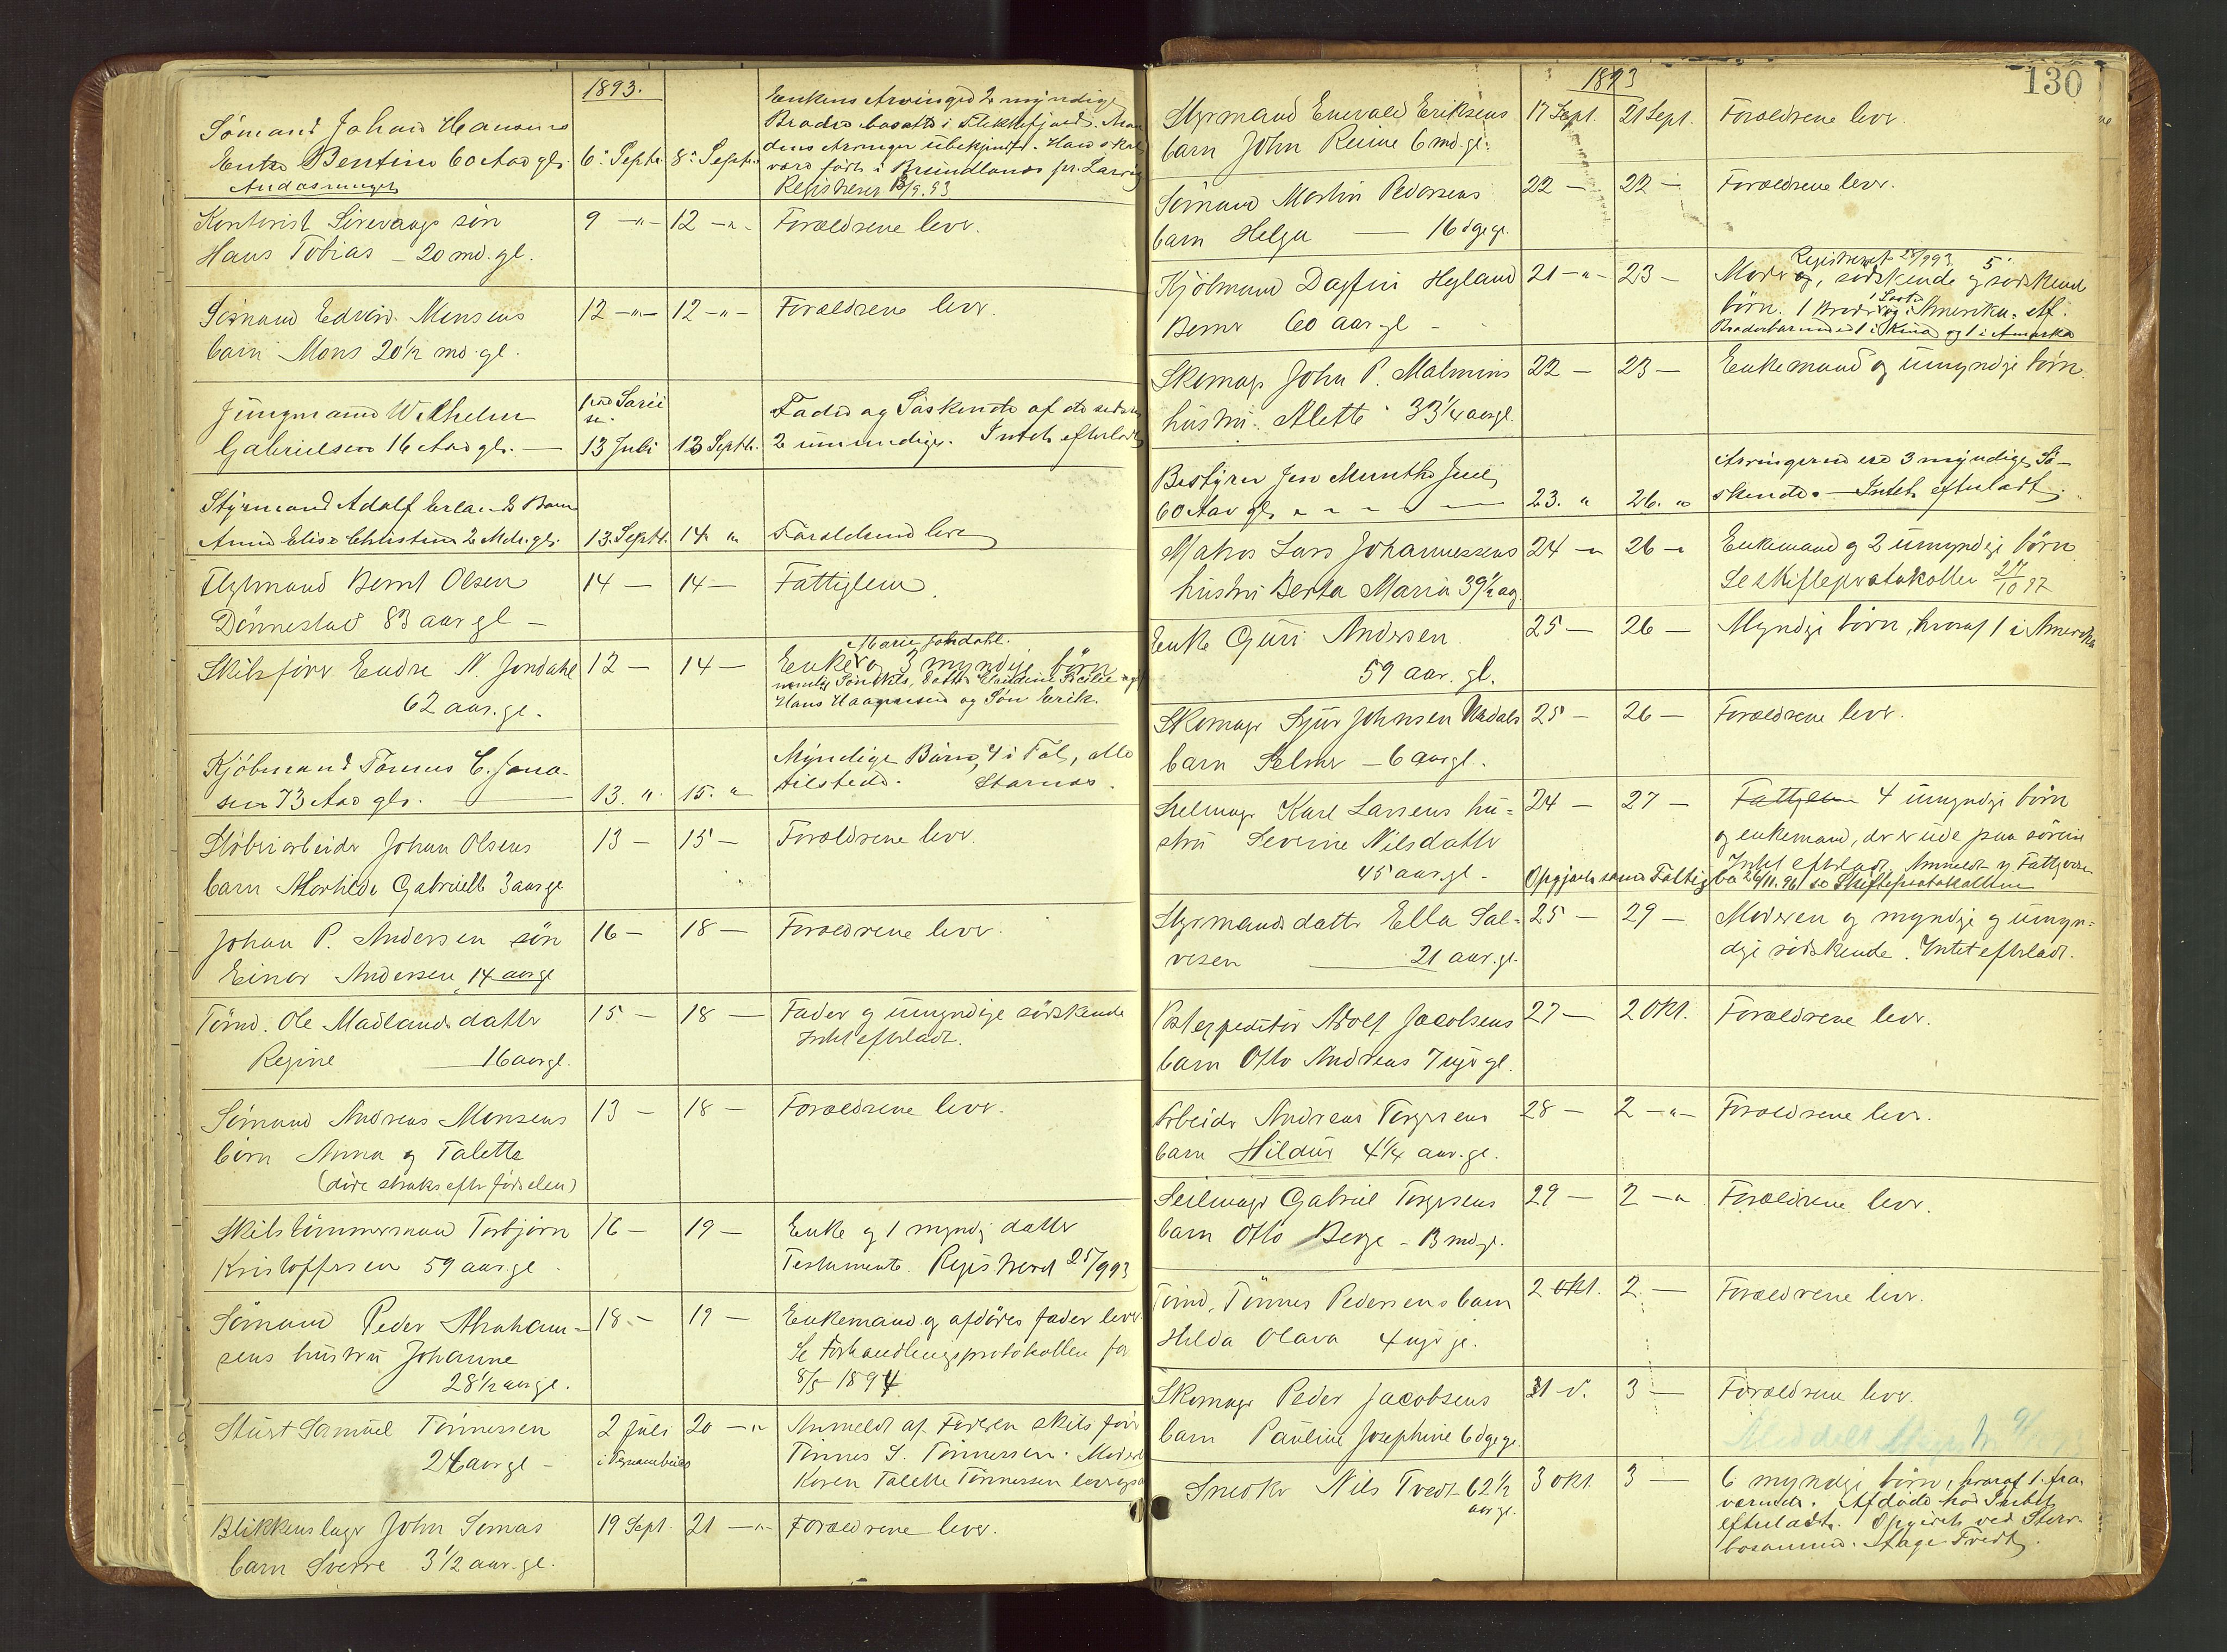 1893.
Sømand Johan Hansens
Enke Bentine 60 Aar gl.
6' Septr. 8' Septr.
Enkens Arvinger 2 myndige
Brødre bosatte i Flekkefjord.
dens Arvinger ubekjendte. Han skal
være født i Brundlanes pr. Larvig
Registreret 13/9.93
Kontorist Sirevaags søn
Hans Tobias - 20 md. gl.
9 -"- 12 -"- Forældrene lever.
Sømand Edvin Monsens
barn Mons 20 1/2 md. gl.
12 -"- 12 -"- Forældrene lever.
Jungmand Wilhelm
Gabrielsen 16 Aar gl. —
13 Juli 13 Septbr.
Fader og Søskende af de sidste
2 umyndige. Intet efterladt
Styrmand Adolf Erlands Barn
Anna Elise Christine 2 Mdr. gl.
13. Septr. 14. " Forældrene lever
Flytmand Bernt Olsen
Dønnestad 83 aar gl —
14 — 14 — Fattiglem.
Skibsfører Endre N. Jondahl
62 aar. gl.
12 — 14 —
Marie Jondahl.
Enke og 3 myndige børn
Hans Haagensen og Søn Erik.
Kjøbmand Tønnes C. Jona-
sen 73 Aar gl. —
13. " 15. "
Myndige Børn, 4 i Tal, alle
tilstede. Starnæs.
Støberiarbeider Johan Olsens
barn Mathilde Gabrielle 3 aar gl
13 — 15 — Forældrene lever.
Johan P. Andersen søn
Einar Andersen, 14 aar gl
16 — 18 — Forældrene lever.
Tømd. Ole Madlands datter
Regine — 16 aar gl.
15 — 18 — Fader og umyndige søskende
Intet efterladt.
Sømand Andreas Monsens
børn Anna og Talette
(døde straks efter fødselen)
13 — 18 — Forældrene lever.
Skibstømmermand Torbjørn
Kristoffersen 59 aar. gl.
16 — 19 — Enke og 1 myndig datter
Testamente. Registreret 25/9 93
Sømand Peder Abraham-
sens hustru Johanne
28 1/2 aar gl.
18 — 19 — Enkemand og afdødes fader lever
Se Forhandlingsprotokollen for
8/5 1894
Stuert Samuel Tønnessen
24 aar gl —
2 Juli 20 -"-
i Pernambuco
Anmeldt af Faderen skibsfører
Tønnes S. Tønnessen. Moderen
Karen Talette Tønnessen lever også
Blikkenslager John Sømas
barn Sverre 3 1/2 aar. gl.
19 Sept. 21 -"- Forældrene lever.
130
1893
Styrmand Enevald Eriksens
barn John Reime 6 md. gl.
17 Sept. 21 Sept. Forældrene lever.
Sømand Martin Pedersens
barn Helga — 16 dge gl.
22 — 22 — Forældrene lever.
Kjøbmand Dagfin Hegland
Berner 60 aar gl —
21 -"- 23 —
Registreret 28/9 93
Moder, søskende og søskende
børn. 1 Broder i Amerika. Af
Broderbørnene 1 i Kina og 1 i Amerika
Skomager John P. Malmins
hustru Alette 33 1/4 aar gl.
22 — 23 — Enkemand og umyndige børn.
Bestyrer Jens Munthe Juel
60 Aar gl.
23. " 26. "
Arvingerne ere 3 myndige Sø-
skende. — Intet efterladt.
Matros Lars Johannessens
hustru Berta Maria 39 1/2 a g.
24 — 26 — Enkemand og 2 umyndige børn
Se skifteprotokollen 27/10 97
Enke Guri Andersen.
59 aar. gl.
25 — 26 — Myndige børn, hvoraf 1 i Amerika
Skomager Sjur Johnsen Aadals
barn Selmer — 6 aar gl.
25 — 26 — Forældrene lever.
Seilmager Karl Larsens hu-
stru Severine Nilsdatter
45 aar. gl.
24 — 27 — Fattiglem 4 umyndige børn
og enkemand, der er ude paa søreise
Intet efterladt. Anmeldt af Fattigvæs.
Opgjort som Fattigbo 26/11.96 se Skifteprotokollen
Styrmands datter Ella Sal-
vesen — 21 aar. gl.
25 — 29 — Moderen og myndige og umyn-
dige søskende. Intet efterladt.
Postexpeditør Adolf Jacobsens
barn Otto Andreas 7 uger gl.
27 — 2 Okt. Forældrene lever.
Arbeider Andreas Torgersens
barn Hildur 4 1/4 aar. gl.
28 — 2 -"- Forældrene lever.
Seilmager Gabriel Torgersens
barn Otto Berge — 13 md. gl.
29 — 2 -" Forældrene lever.
Tømd. Tønnes Pedersens barn
Hilda Olava 4 uger gl.
2 Okt. 2 — Forældrene lever.
Skomager Peder Jacobsens
barn Pauline Josephine 6 dge gl.
31 v. 3 — Forældrene lever.
Snedker Nils Tvedt 62 1/2
aar gl.
3 Okt. 3 —
6 myndige børn, hvoraf 1 fra-
værende. Afdøde har Intet
efterladt. Opgivet ved Sterv-
bosønnen Aage Tvedt.